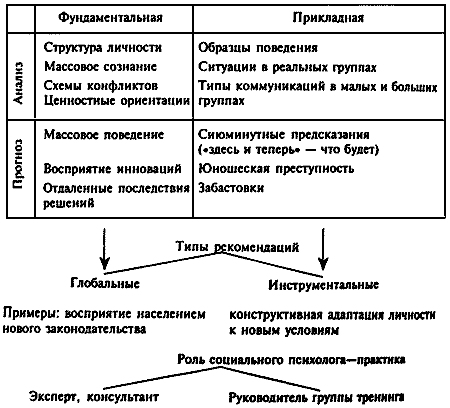 Фундаментальная Прикладная
Анализ
Структура личности Образцы поведения
Массовое сознание Ситуации в реальных группах
Схемы конфликтов Типы коммуникаций в малых и больших
Ценностные ориентации группах
Прогноз
Массовое поведение Сиюминутные предсказания
(«здесь и теперь» — что будет)
Восприятие инноваций Юношеская преступность
Отдаленные последствия Забастовки
решений
Типы рекомендаций
Глобальные Инструментальные
Примеры: восприятие населением конструктивная адаптация личности
нового законодательства к новым условиям
Роль социального психолога—практика
Эксперт, консультант Руководитель группы тренинга